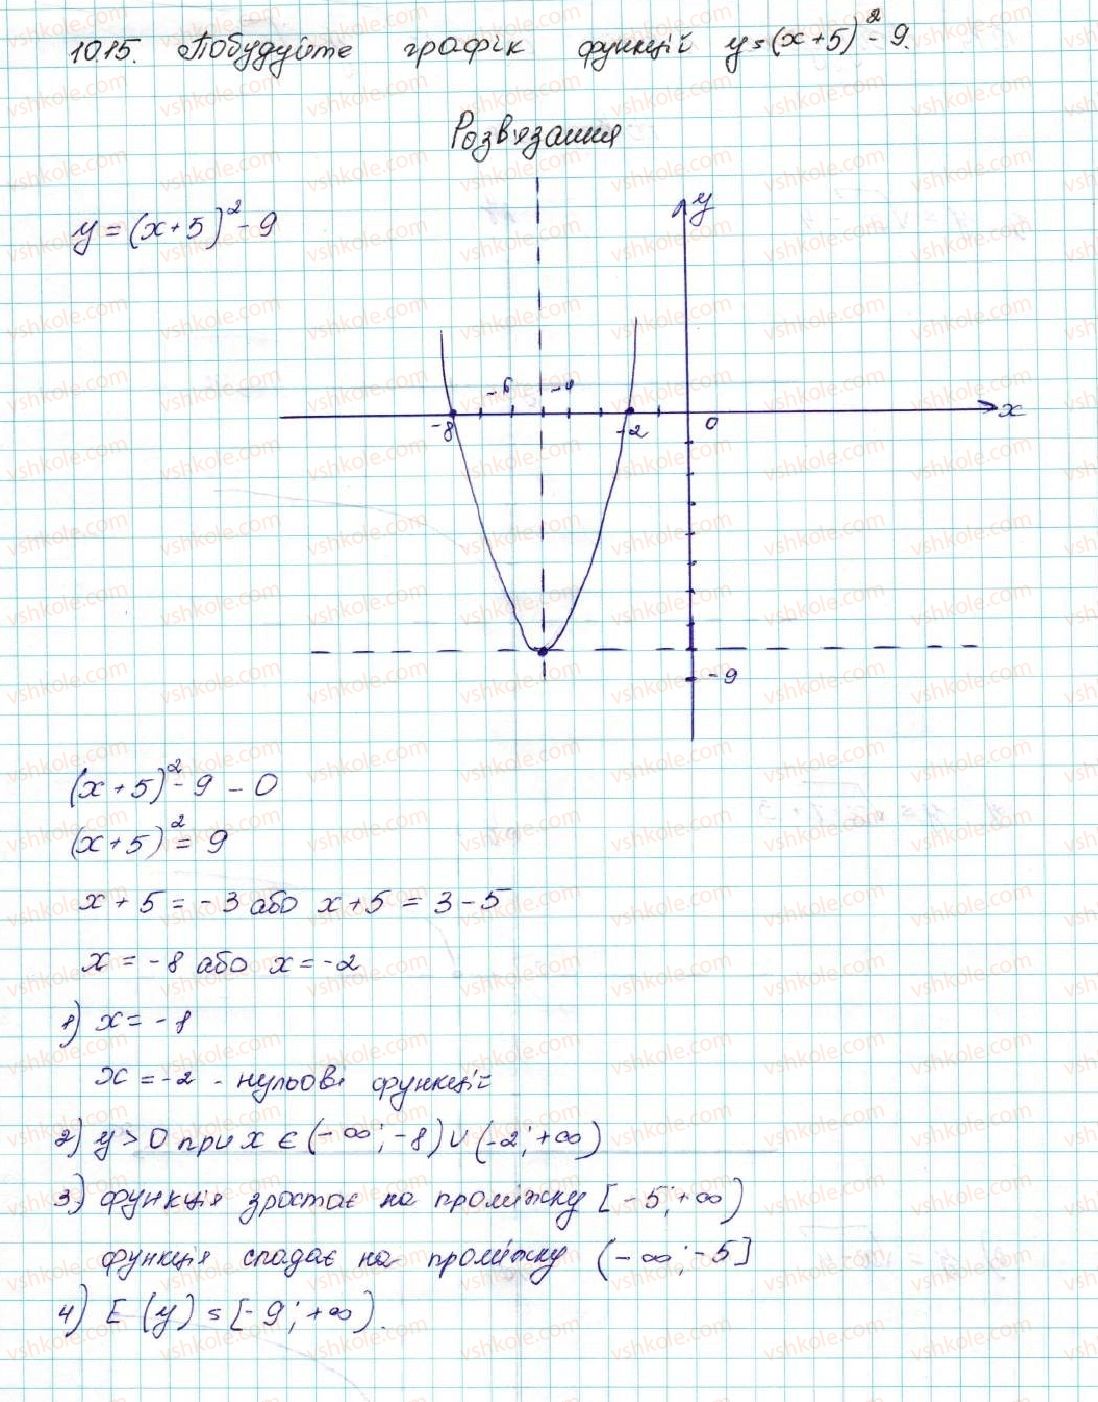 10.15. Побудуйте графік функцій y = (x+5)² - 9.
Розв'язання
y = (x+5)² - 9
y
-6 -4
-8 -2 0 x
-9
(x+5)² - 9 - 0
(x+5)² = 9
x + 5 = -3 або x + 5 = 3 - 5
x = -8 або x = -2
1) x = -8
x = -2 - нульові функцій
2) y > 0 при x ∈ (-∞; -8) ∪ (-2; +∞)
3) функція зростає на проміжку [-5; +∞)
функція спадає на проміжку (-∞; -5]
4) E(y) = [-9; +∞).